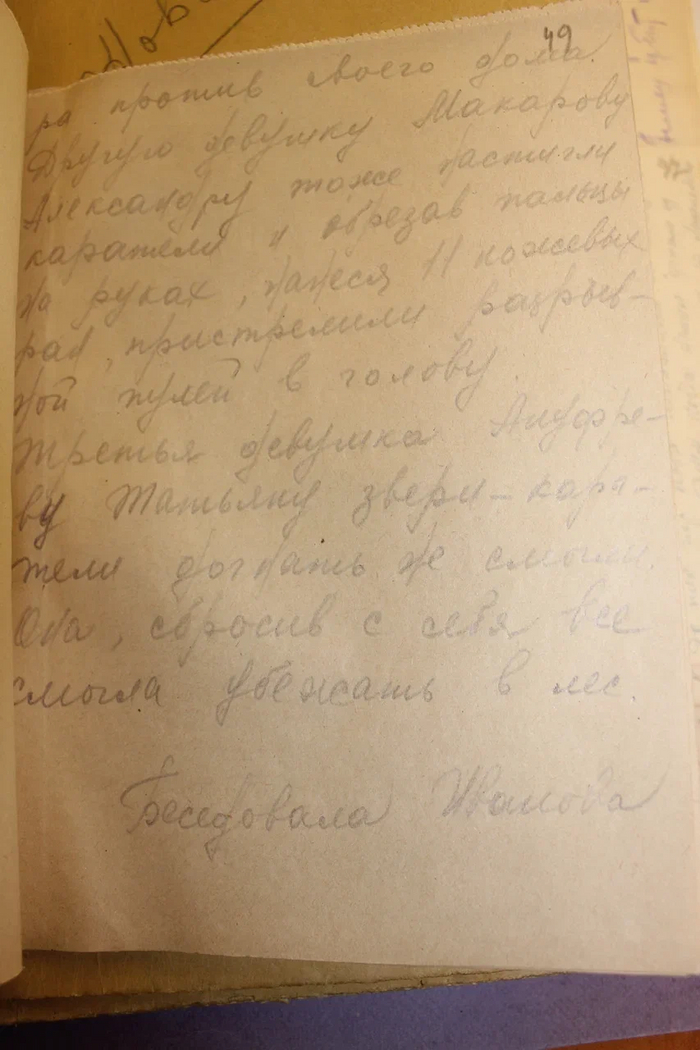 49
ра против своего дома.
Другую девушку Макарову
Александру тоже настигли
каратели и обрезав пальцы
на руках, нанеся 11 ножевых
ран, пристрелили разрыв-
ной пулей в голову.
Третья девушка Андре-
ву Татьяну звери-кара-
тели догнать не смогли.
Она, сбросив с себя все
смогла убежать в лес.
Беседовала Иванова